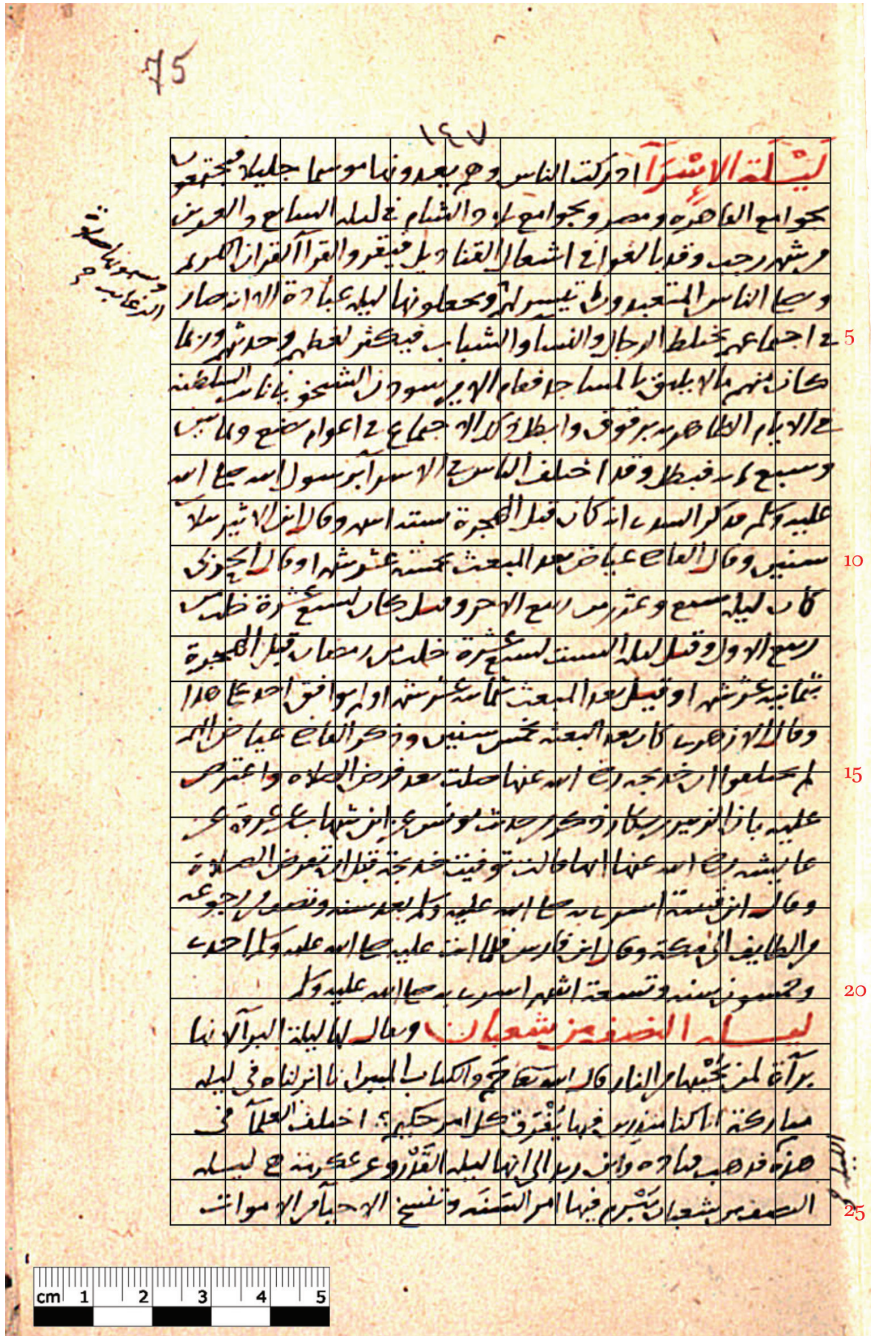 75
١٤٧
لَيْلَة الإِسْرَآ ادركت الناس وهم يعدونها موسما جليلا فيجتمعون
بجوامع القاهره ومصر وبجوامع بلاد الشام في ليله السابع والعشرين
من شهر رجب وقد بالغوا في اشعال القناديل فيقرو القرا القران الكريم
ويصلى الناس المتعبدون ما تيسر لهم ويجعلونها ليله عبادة الا انه صار
في اجتماعهم يختلط الرجال والنسا والشباب فيكثر لغطهم وحديثهم وربما
كان منهم ما لا يليق بالمساجد فقام الامير سودون الشيخوني نايب السلطنه
في الايام الظاهريه برقوق وابطل ذلك الاجتماع في اعوام بضع وثمانين
وسبع مايه فبطل وقد اختلف الناس في الاسرآ برسول الله صلى الله
عليه وسلم فذكر السدى انه كان قبل الهجرة بسنه وقال ابن الاثير بثلاث
سنين وقال القاضي عياض بعد المبعث بخمسة عشر شهرا وقال الحربى
كان ليله سبع وعشرين ربيع الاخر وقيل كان لسبع عشرة خلت من
ربيع الاول وقيل ليله السبت لسبع عشرة خلت من رمضان قبل الهجرة
بثمانيه عشر شهرا وقيل بعد المبعث بثمانيه عشر شهرا ولم يوافق احد على هذا
وقال الازهرى كان بعد البعثه بخمس سنين وذكر القاضي عياض انهم
لم يختلفوا ان خديجه رضى الله عنها صلت بعد فرض الصلاه واعترض
عليه بان الزبير بن بكار ذكر من حديث يونس عن ابن شهاب عن عروة عن
عايشه رضى الله عنها انها قالت توفيت خديجة قبل ان تفرض الصلاة
وقال ابن قتيبة اسرى به صلى الله عليه وسلم بعد سنه ونصف من رجوعه
من الطايف الى مكة وقال ابن فارس فلما اتت عليه صلى الله عليه وسلم احدى
وخمسون سنه وتسعة اشهر اسرى به صلى الله عليه وسلم
ليله النصف من شعبان ويقال لها ليلة البرآة لانها
برآة لمن يحييها من النار قال الله تعالى حم والكتاب المبين انا انزلناه فى ليله
مباركة انا كنا منذرين فيها يُفْرَق كل امر حكيم اختلف العلمآ فى
هذه فذهب قتاده وابن زيد الى انها ليله القَدْر وعن عكرمه هى ليله
النصف من شعبان يُبْرم فيها امر السَنَه وتنسخ الاحيآ من الاموات
ويسمونها صلاة
الرغايب
5
10
15
20
25
cm 1 2 3 4 5